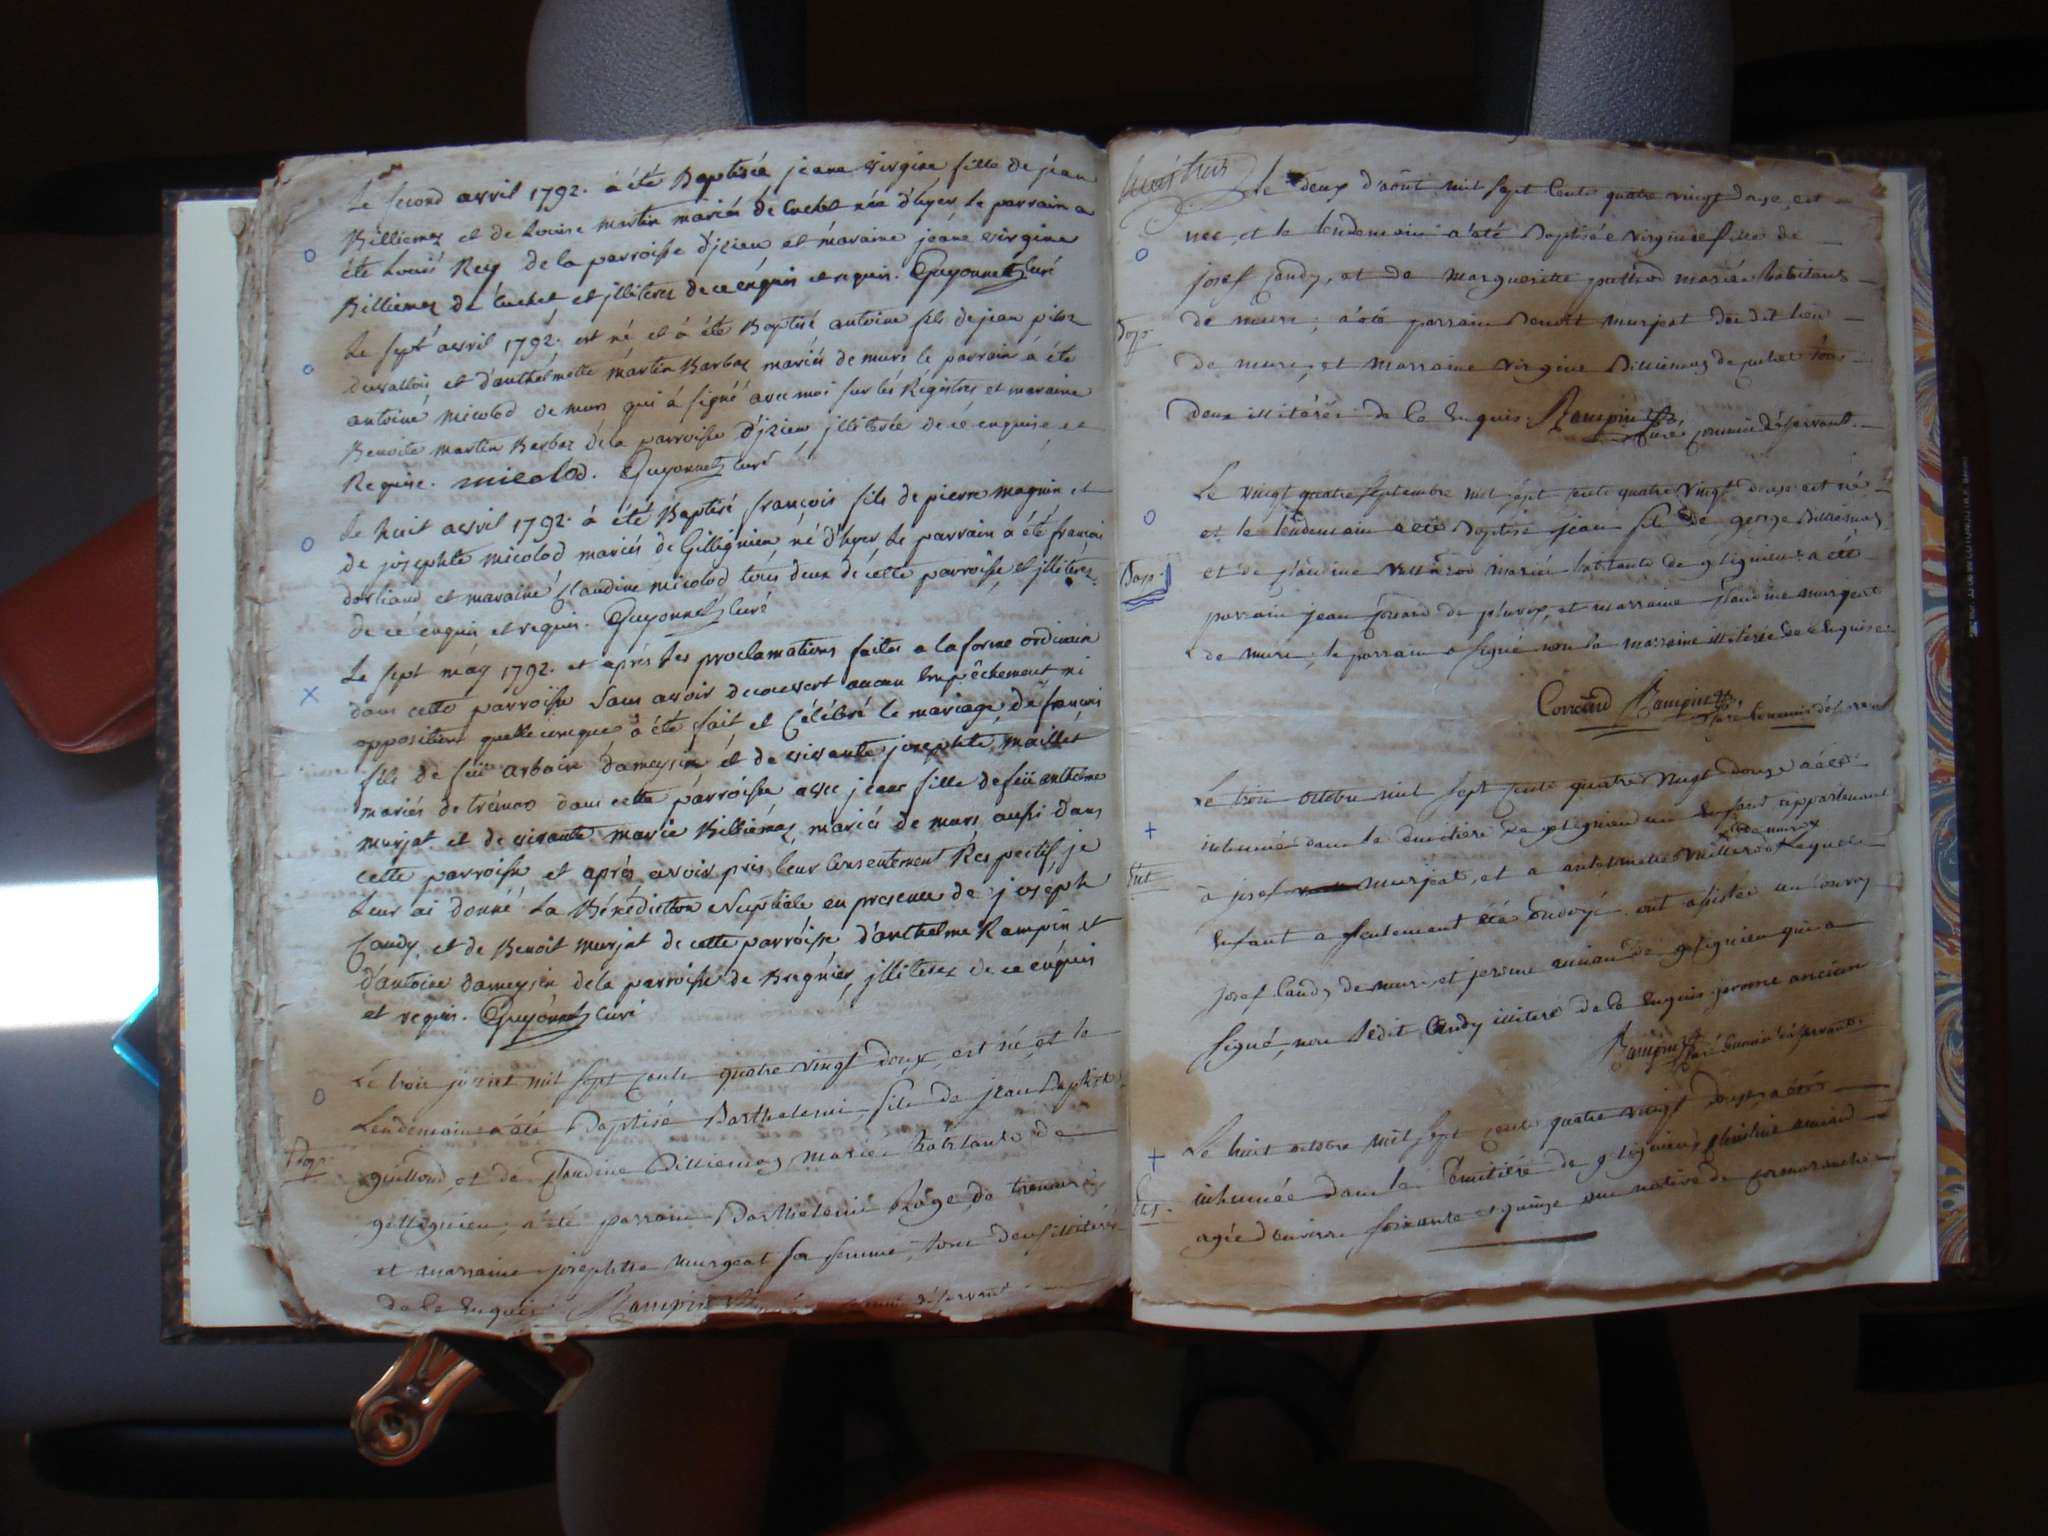 Le second avril 1792. à été Baptisée jeane virgine fille de jean
Billiemaz et de Louise martin mariés de Cuchet née d'hyer, le parrain a
été Louis Rey de la parroisse d'izieu et maraine jeane virgine
Billiemaz de Cuchet et jlliteres de ce enquis et requis. Guyonnet Curé
Le sept avril 1792. est né et à été Baptisé antoine fils de jean
et d'anthelmette martin Barbaz mariés de murs le parrain à été
antoine micolod de murs qui à signé avec moi sur les Régistres et maraine
Benoite martin Barbaz de la parroisse d'izieu jlliterée de ce enquise et
Requise. micolod. Guyonnet Curé
Le huit avril 1792. à été Baptisé françois fils de pierre magnin et
de josephte micolod mariés de Gillignieu né d'hyer, le parrain à été francois
et maraine Claudine micolod tous deux de cette parroisse et jlliteres
de ce enquis et requis. Guyonnet Curé
Le sept may 1792. et après les proclamations faites a la forme ordinaire
dans cette parroisse sans avoir decouvert aucun empêchement ni
opposition quelleconque à été fait et Célébré le mariage de francois
fils de feu arbain dameysin et de vivante josephte maillet
mariés de tremurs dans cette parroisse avec jeane fille de feu anthelme
murjat et de vivante marie Billiémaz mariés de murs aussi dans
cette parroisse et après avoir pris leur Consentement Respectif, je
leur ai donné la Bénédiction Nuptiale en presence de joseph
Candy, et de Benoit murjat de cette parroisse d'anthelme Rampin et
d'antoine dameysin de la parroisse de Bregnier, jlliteres de ce enquis
et requis. Guyonnet Curé
Le trois mil sept cents quatre vingt douze, est né, et le
Lendemain a été Baptisé Barthelemi fils de jean Baptiste
Bap.
guillond, et de Claudine Billiemaz mariés habitants de
gelignieu; a été parrain Barthelemi de tremurs
et marraine josephte murgeat sa femme, tous deux illitérés
de ce Enquis Rampin
huit
Le deux d'août mil sept Cents quatre vingt douze, est
nee, et le lendemain a été Baptisée virginie fille de
josef Candy, et de margueritte mariés habitants
Bap.
de murs; a été parrain Benoit murjeat dudit lieu
de murs, et marraine virgine Billiemaz de cuchet tous
deux illitérés de ce Enquis. Rampin
Curé commis désservant.
Le vingt quatre septembre mil sept cents quatre vingt douze est né
et le lendemain a été Baptisé jean fils de george Billiemaz
Bap.
et de Claudine mariés habitants de gelignieu: a été
parrain jean de et marraine Claudine murgeat
de murs; le parrain a signé non la marraine illiterée de ce Enquise
Rampin
Curé Commis désservant
Le trois octobre mil sept cents quatre vingt douze a été
inhumé dans le cimitière de gelignieu un Enfant appartenant
de murs
Ent.
à josef murjeat, et a anthelmette lequel
Enfant a seulement été ondoyé. ont assistés au convoy
josef Candy de murs, et jerome de gelignieu qui a
signé, non ledit Candy illiteré de ce Enquis jerome
Rampin
Curé Commis désservant.
Le huit octobre mil sept cents quatre vingt douze a été
inhumée dans le Cimitière de gelignieu,
Ent.
agée d'environ soixante et quinze ans native de